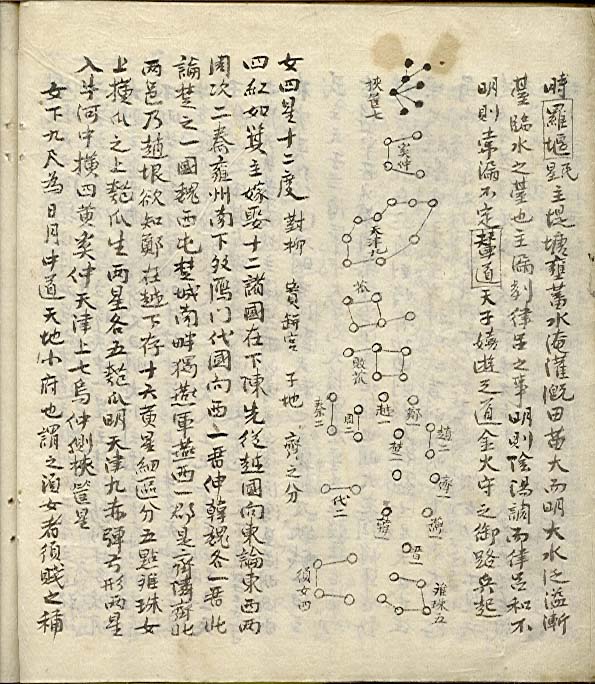 時羅堰星主堤塘壅蓄水灌溉田苗大而明大水泛溢漸
臺臨水之臺也主漏刻律呂之事明則陰陽調而律呂和不
明則韋漏不定輦道天子嬉遊之道金火守之御路兵起
扶筐七
奚仲
天津九
瓜
敗瓜
越一
鄭一
周二
秦二
趙二
楚一
齊一
代二
魏一
晉一
離珠五
須女四
女四星十二度 對柳 寶瓶宮 子地 齊之分
四紅如箕主嫁娶十二諸國在下陳先從越國向東論東西兩
周次二秦雍州南下双鴈門代國向西一晉伸韓魏各一晉北
論楚之一國魏西屯楚城南畔獨燕軍燕西一郤是齊隣齊北
兩邑乃趙垠欲知鄭在越下存十六黃星細區分五點離珠女
上橫瓜之上瓠瓜生兩星各五瓠瓜明天津九赤彈弓形兩星
入牛河中橫四黃奚仲天津上七烏仲側扶筐星
女下九尺為日月中道天地小府也謂之須女者須賤之補